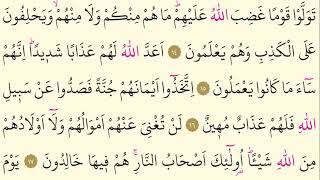 تَوَلَّوْا قَوْمًا غَضِبَ اللّٰهُ عَلَيْهِمْۜ مَا هُمْ مِنْكُمْ وَلَا مِنْهُمْۙ وَيَحْلِفُونَ
عَلَى الْكَذِبِ وَهُمْ يَعْلَمُونَ ﴿١٤﴾ اَعَدَّ اللّٰهُ لَهُمْ عَذَابًا شَد۪يدًاۜ اِنَّهُمْ
سَٓاءَ مَا كَانُوا يَعْمَلُونَ ﴿١٥﴾ اِتَّخَذُٓوا اَيْمَانَهُمْ جُنَّةً فَصَدُّوا عَنْ سَب۪يلِ
اللّٰهِ فَلَهُمْ عَذَابٌ مُه۪ينٌ ﴿١٦﴾ لَنْ تُغْنِيَ عَنْهُمْ اَمْوَالُهُمْ وَلَٓا اَوْلَادُهُمْ
مِنَ اللّٰهِ شَيْـًٔاۜ اُو۬لٰٓئِكَ اَصْحَابُ النَّارِۜ هُمْ ف۪يهَا خَالِدُونَ ﴿١٧﴾ يَوْمَ